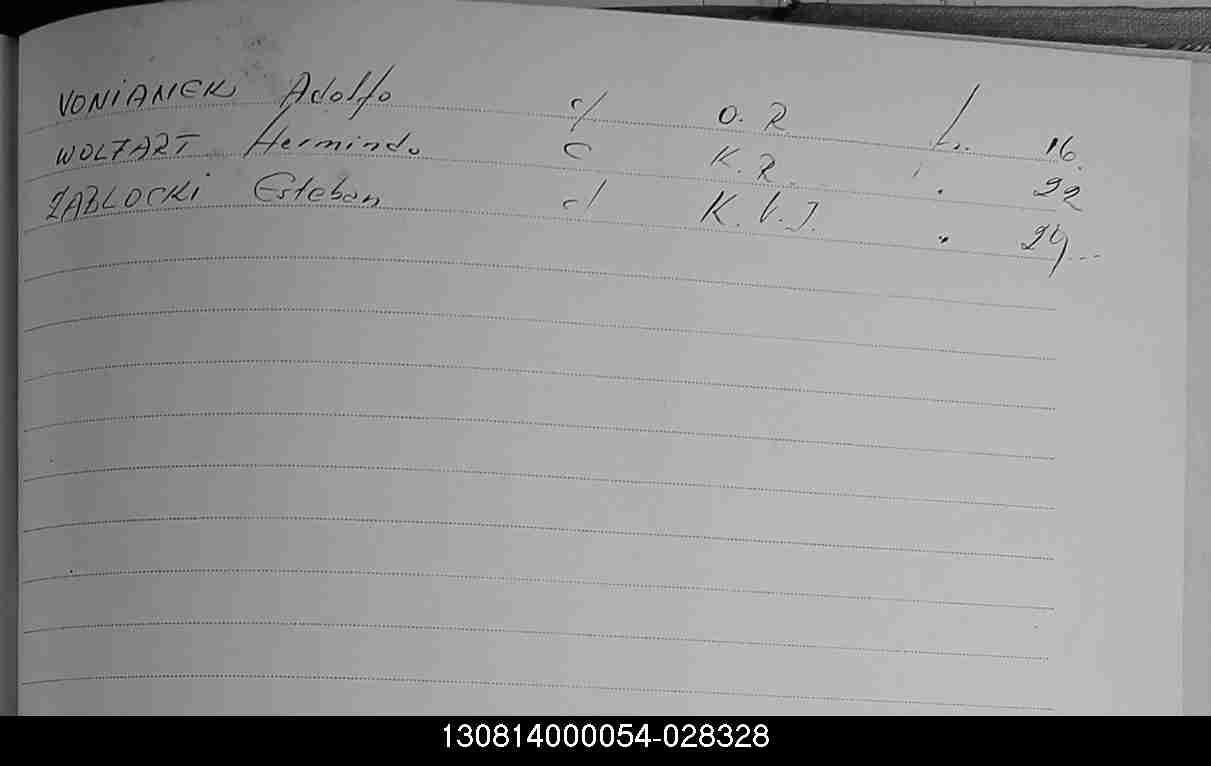 VONIANEK Adolfo c/ O. R. L.. 16.
WOLFART Hermindo c K. R. . 22
ZABLOCKI Esteban c/ K. V. J. . 24...
130814000054-028328